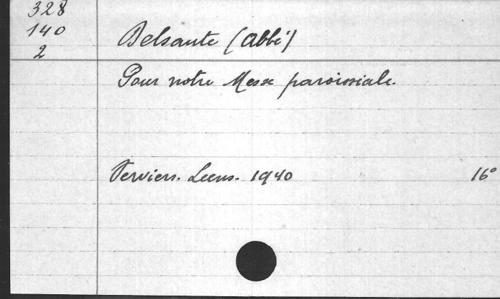 328
140
2
Delsaute (Abbé)
Pour notre Messe paroissiale.
Verviers. Leens. 1940 16°